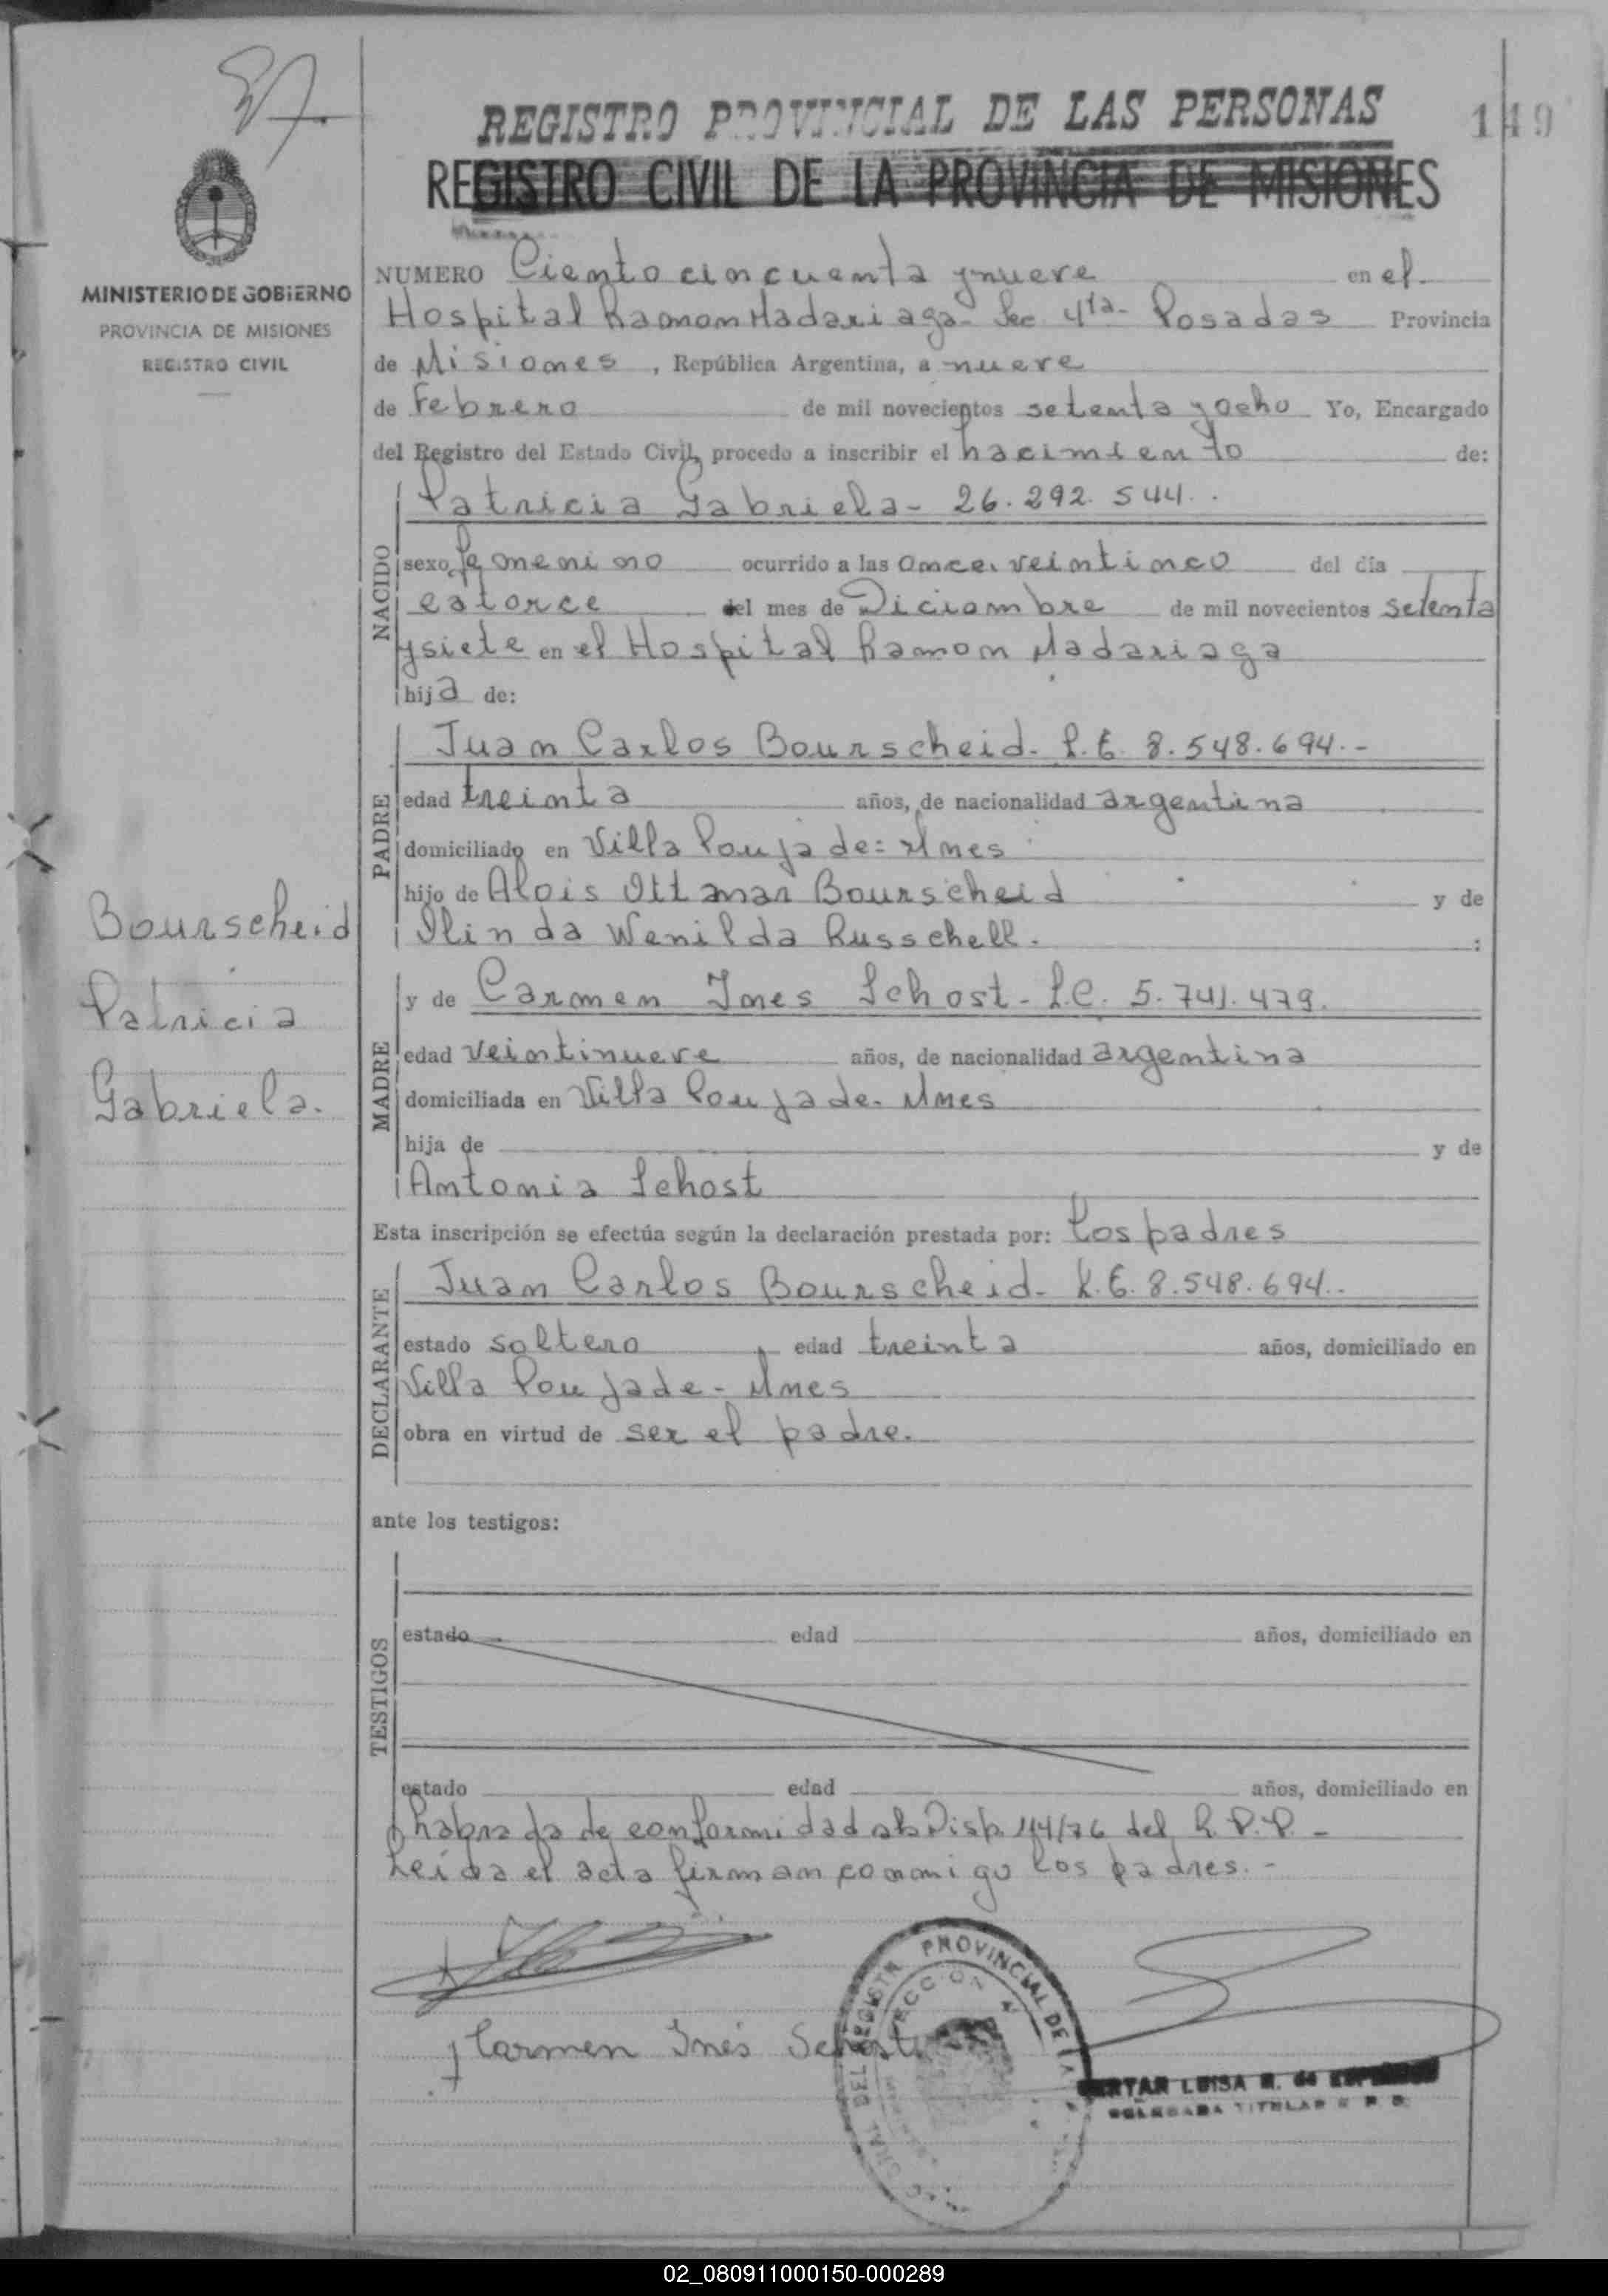 REGISTRO PROVINCIAL DE LAS PERSONAS
149
REGISTRO CIVIL DE LA PROVINCIA DE MISIONES
MINISTERIO DE GOBIERNO
PROVINCIA DE MISIONES
REGISTRO CIVIL
NUMERO Ciento cincuenta y nueve en el
Hospital Ramon Madariaga - Sec 4ta - Posadas Provincia
de Misiones, República Argentina, a nueve
de Febrero de mil novecientos setenta y ocho Yo, Encargado
del Registro del Estado Civil, procedo a inscribir el nacimiento de:
NACIDO
Patricia Gabriela - 26.292.544.
sexo femenino ocurrido a las once veintinco del día
catorce del mes de Diciembre de mil novecientos setenta
y siete en el Hospital Ramon Madariaga
hija de:
PADRE
Juan Carlos Bourscheid - L.E. 8.548.694.-
edad treinta años, de nacionalidad argentina
domiciliado en Villa Poujade = Mnes
hijo de Alois Ottmar Bourscheid y de
Ilinda Wenilda Russchell. :
Bourscheid
Patricia
Gabriela.
MADRE
y de Carmen Ines Schost - L.C. 5.741.479.
edad veintinueve años, de nacionalidad argentina
domiciliada en Villa Poujade - Mnes
hija de y de
Antonia Schost
Esta inscripción se efectúa según la declaración prestada por: los padres
DECLARANTE
Juan Carlos Bourscheid - L.E. 8.548.694.-
estado soltero, edad treinta años, domiciliado en
Villa Poujade - Mnes
obra en virtud de ser el padre.
ante los testigos:
TESTIGOS
estado edad años, domiciliado en
estado edad años, domiciliado en
Labrada de conformidad a la Disp. 114/76 del R.P.P. -
Leída el acta firman conmigo los padres. -
Carmen Inés Schost
PROVINCIAL DE LA
SECCION
LUISA M. de
DELEGADA TITULAR R P P
02_080911000150-000289